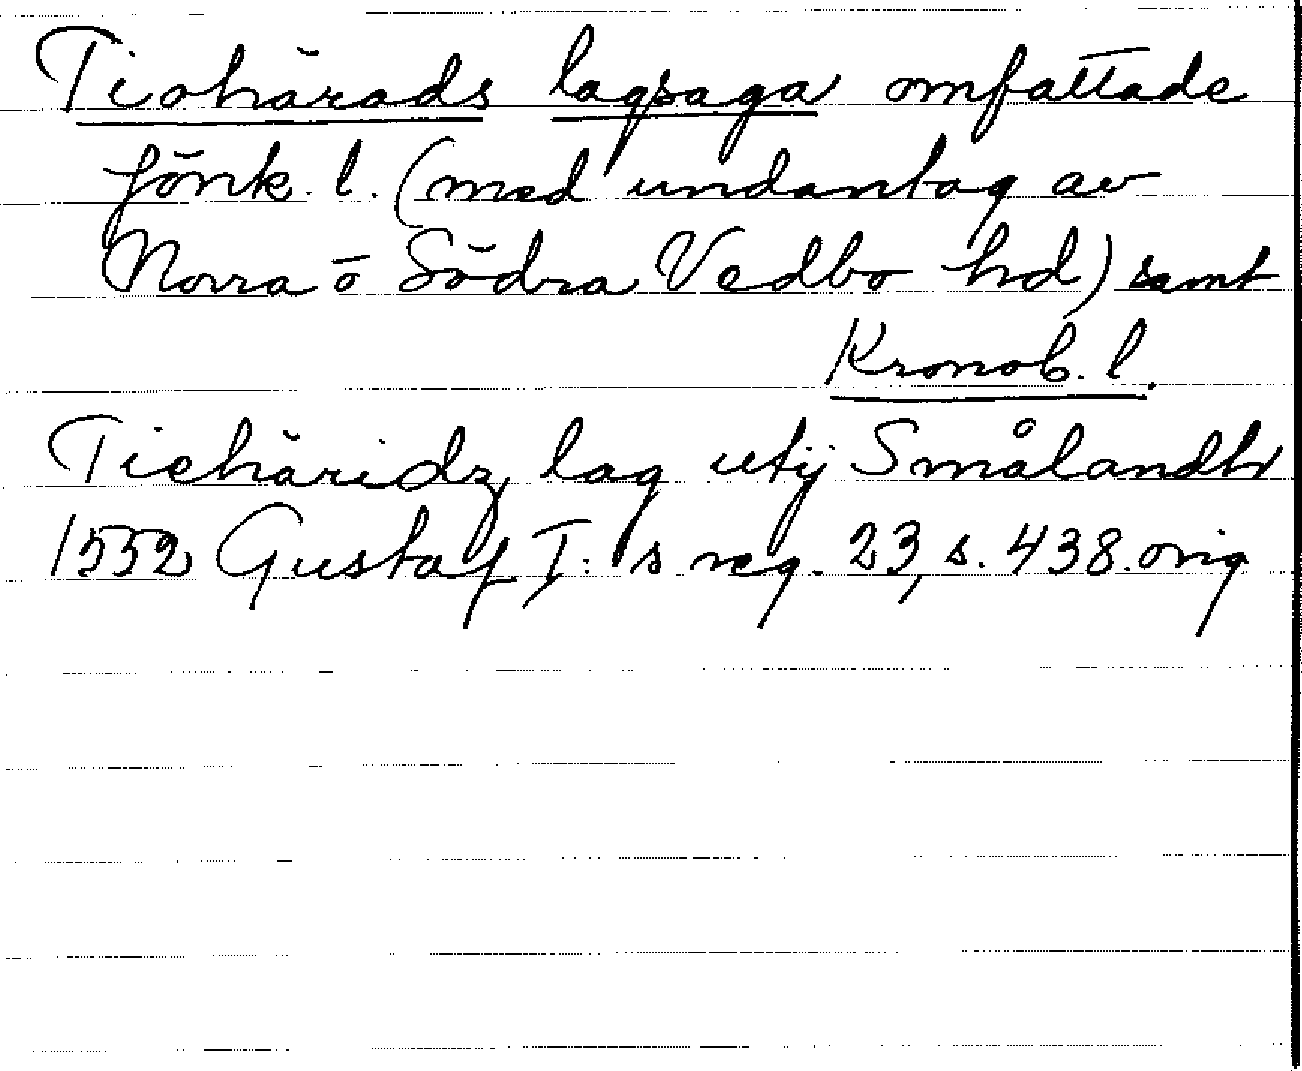 Tiohärads lagsaga omfattade
Jönk. l. (med undantag av
Norra o Södra Vedbo hd) samt
Kronob. l.
Tiehäridz lag utij Smålandh
1552 Gustaf I:s reg. 23, s. 438. orig